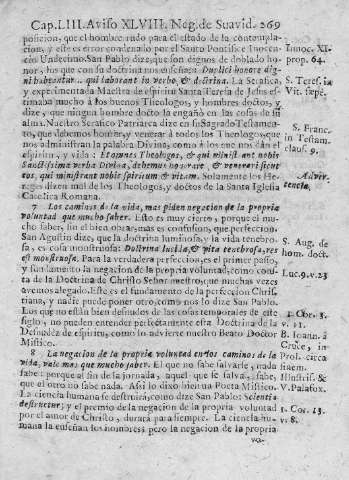 Cap. LIII. Aviso XLVIII. Neg. de Suavid. 269
posicion, que el hombre rudo para el estado de la contempla-
cion, y este es error condenado por el Santo Pontifice Inocen-
cio Undecimo. San Pablo dize, que son dignos de doblado ho-
nor, los que con su doctrina nos enseñan: Duplici honore dig-
ni habentur... qui laborant in verbo, & doctrina. La Serafica,
y experimentada Maestra de espiritu Santa Teresa de Jesus es-
timaba mucho à los buenos Theologos, y hombres doctos, y
dize, que ningun hombre docto la engañò en las cosas de su
alma. Nuestro Serafico Patriarca dize en su Sagrado Testamen-
to, que debemos honrar, y venerar à todos los Theologos, que
nos administran la palabra Divina, como à los que nos dàn el
espiritu, y vida: Et omnes Theologos, & qui ministrant nobis
Sanctissima verba Divina, debemus honorare, & venerari sicut
eos, qui ministrant nobis spiritum & vitam. Solamente los He-
reges dizen mal de los Theologos, y doctos de la Santa Iglesia
Catolica Romana.
7 Los caminos de la vida, mas piden negacion de la propria
voluntad que mucho saber. Esto es muy cierto, porque el mu-
cho saber, sin el bien obrar, mas es confusion, que perfeccion.
San Agustin dize, que la doctrina luminosa, y la vida tenebro-
sa, es cosa monstruosa: Doctrina lucida, & vita tenebrosa, res
est monstruosa. Para la verdadera perfeccion, es el primer passo,
y fundamento la negacion de la propria voluntad, como cons-
ta de la Doctrina de Christo Señor nuestro, que muchas vezes
avemos alegado. Este es el fundamento de la perfeccion Chris-
tiana, y nadie puede poner otro, como nos lo dize San Pablo.
Los que no estàn vacios de todas las cosas temporales de este
siglo, no pueden entender perfectamente esta Doctrina de la
Desnudèz de espiritu, como lo advierte nuestro Beato Doctor
Mistico.
8 La negacion de la propria voluntad en los caminos de la
vida, vale mas que mucho saber. El que no sabe salvarse, nada
sabe: porque al fin de la jornada, aquel que se salva, sabe,
que el otro no sabe nada. Assi lo dixo un Poeta Mistico.
La ciencia humana se destruirà, como dize San Pablo: Scientia
destructur; y el premio de la negacion de la propria voluntad
por el amor de Christo, durarà para siempre. La ciencia hu-
mana la enseñan los hombres; pero la negacion de la propria
vo-
Innoc. XI.
prop. 64.
S. Teres. in
Vit. sæpe.
S. Franc.
in Testam.
claus. 9.
Adver-
tencia.
S. Aug. de
hom. doct.
Luc. 9. v. 23
1. Cor. 3.
v. 11.
B. Ioann. à
Cruce, in
Prol. circa
finem.
Illustris. &
V. Palafox.
1. Cor. 13.
v. 8.